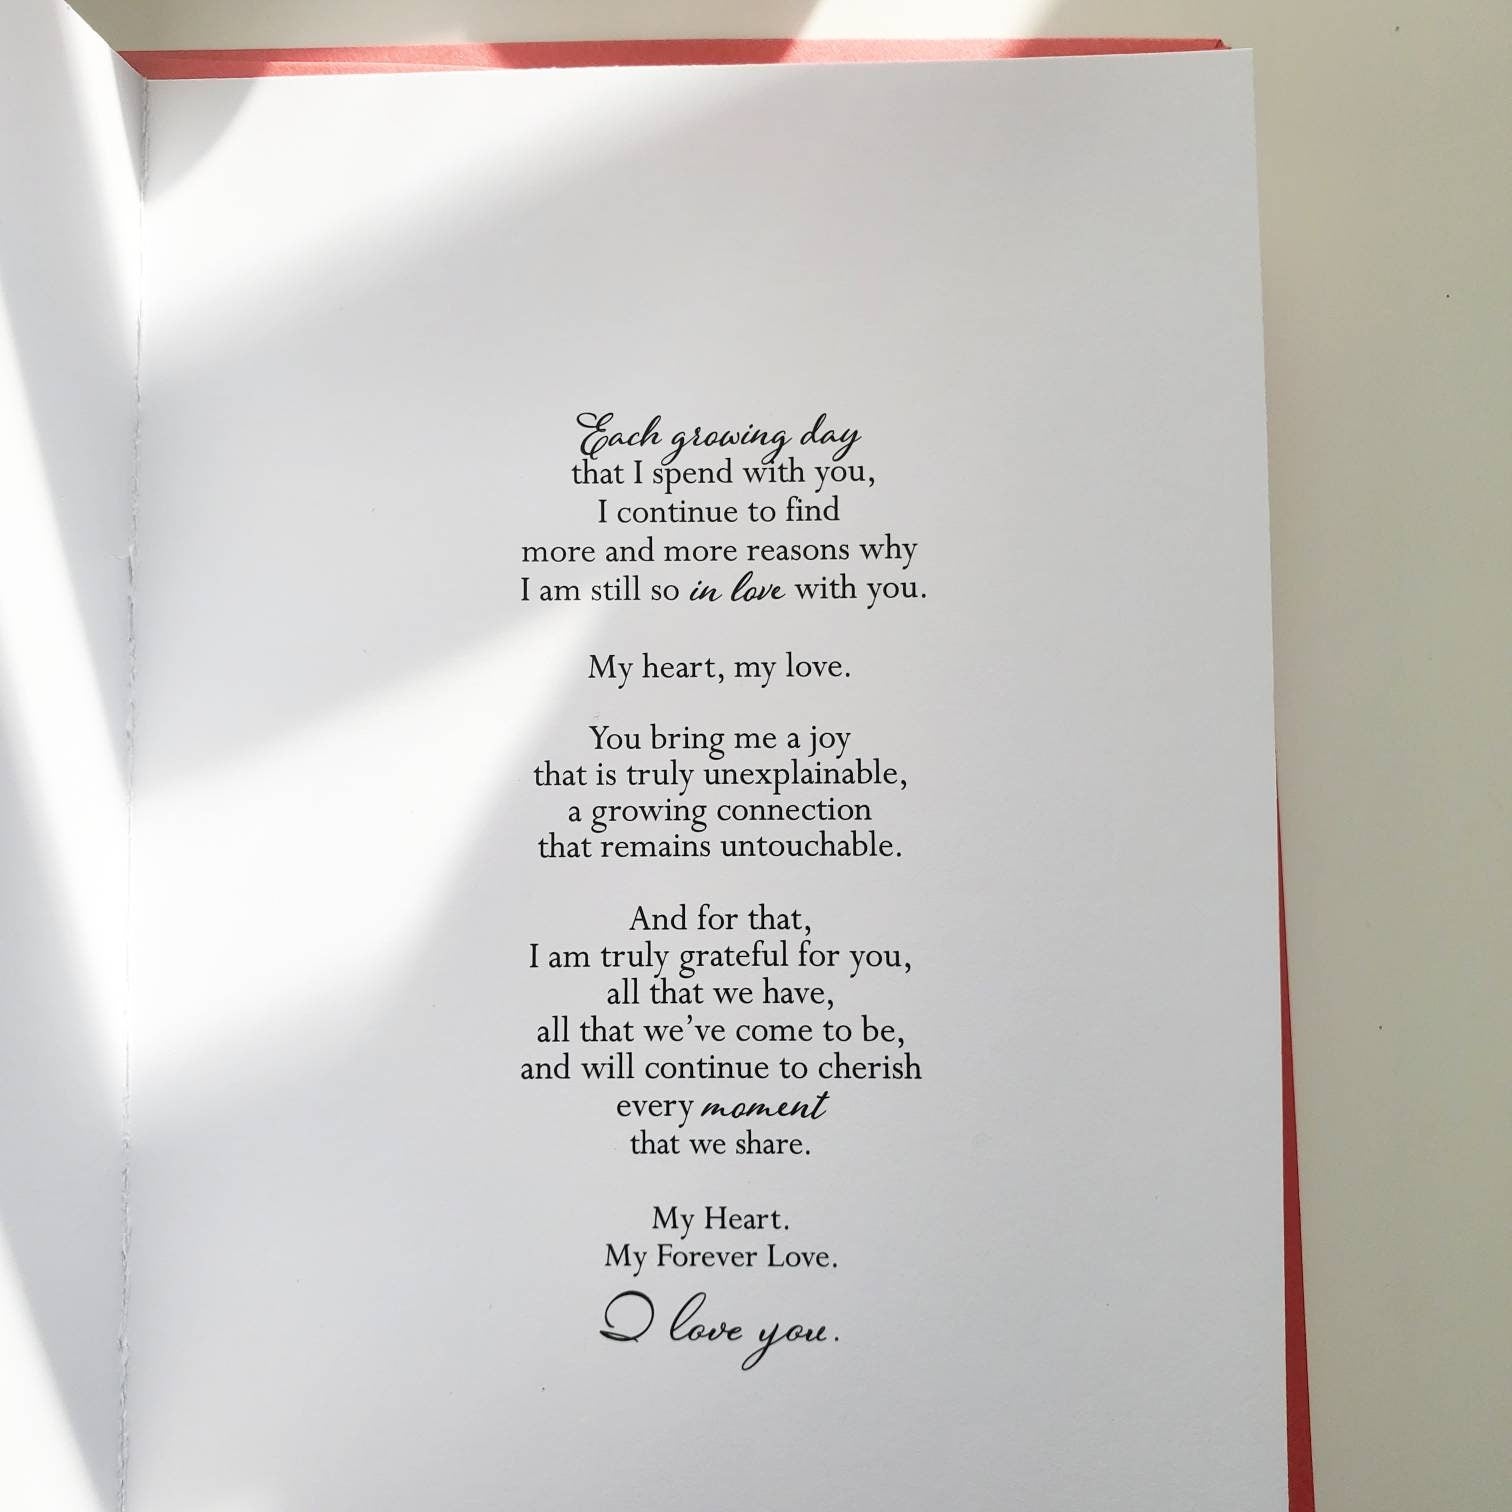 Each growing day
that I spend with you,
I continue to find
more and more reasons why
I am still so in love with you.
My heart, my love.
You bring me a joy
that is truly unexplainable,
a growing connection
that remains untouchable.
And for that,
I am truly grateful for you,
all that we have,
all that we’ve come to be,
and will continue to cherish
every moment
that we share.
My Heart.
My Forever Love.
I love you.